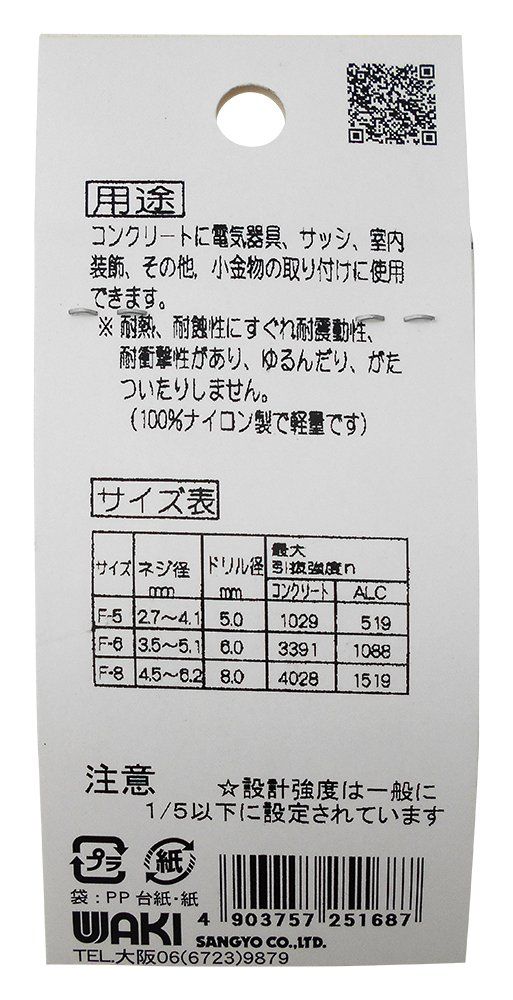 用途
コンクリートに電気器具、サッシ、室内
装飾、その他、小金物の取り付けに使用
できます。
※耐熱、耐蝕性にすぐれ耐震動性、
耐衝撃性があり、ゆるんだり、がた
ついたりしません。
(100%ナイロン製で軽量です)
サイズ表
サイズ ネジ径 mm ドリル径 mm 最大 引抜強度n
コンクリート ALC
F-5 2.7〜4.1 5.0 1029 519
F-6 3.5〜5.1 6.0 3391 1088
F-8 4.5〜6.2 8.0 4028 1519
注意 ☆設計強度は一般に
1/5以下に設定されています
プラ 紙
袋:PP 台紙・紙
4 903757 251687
WAKI SANGYO CO.,LTD.
TEL.大阪06(6723)9879